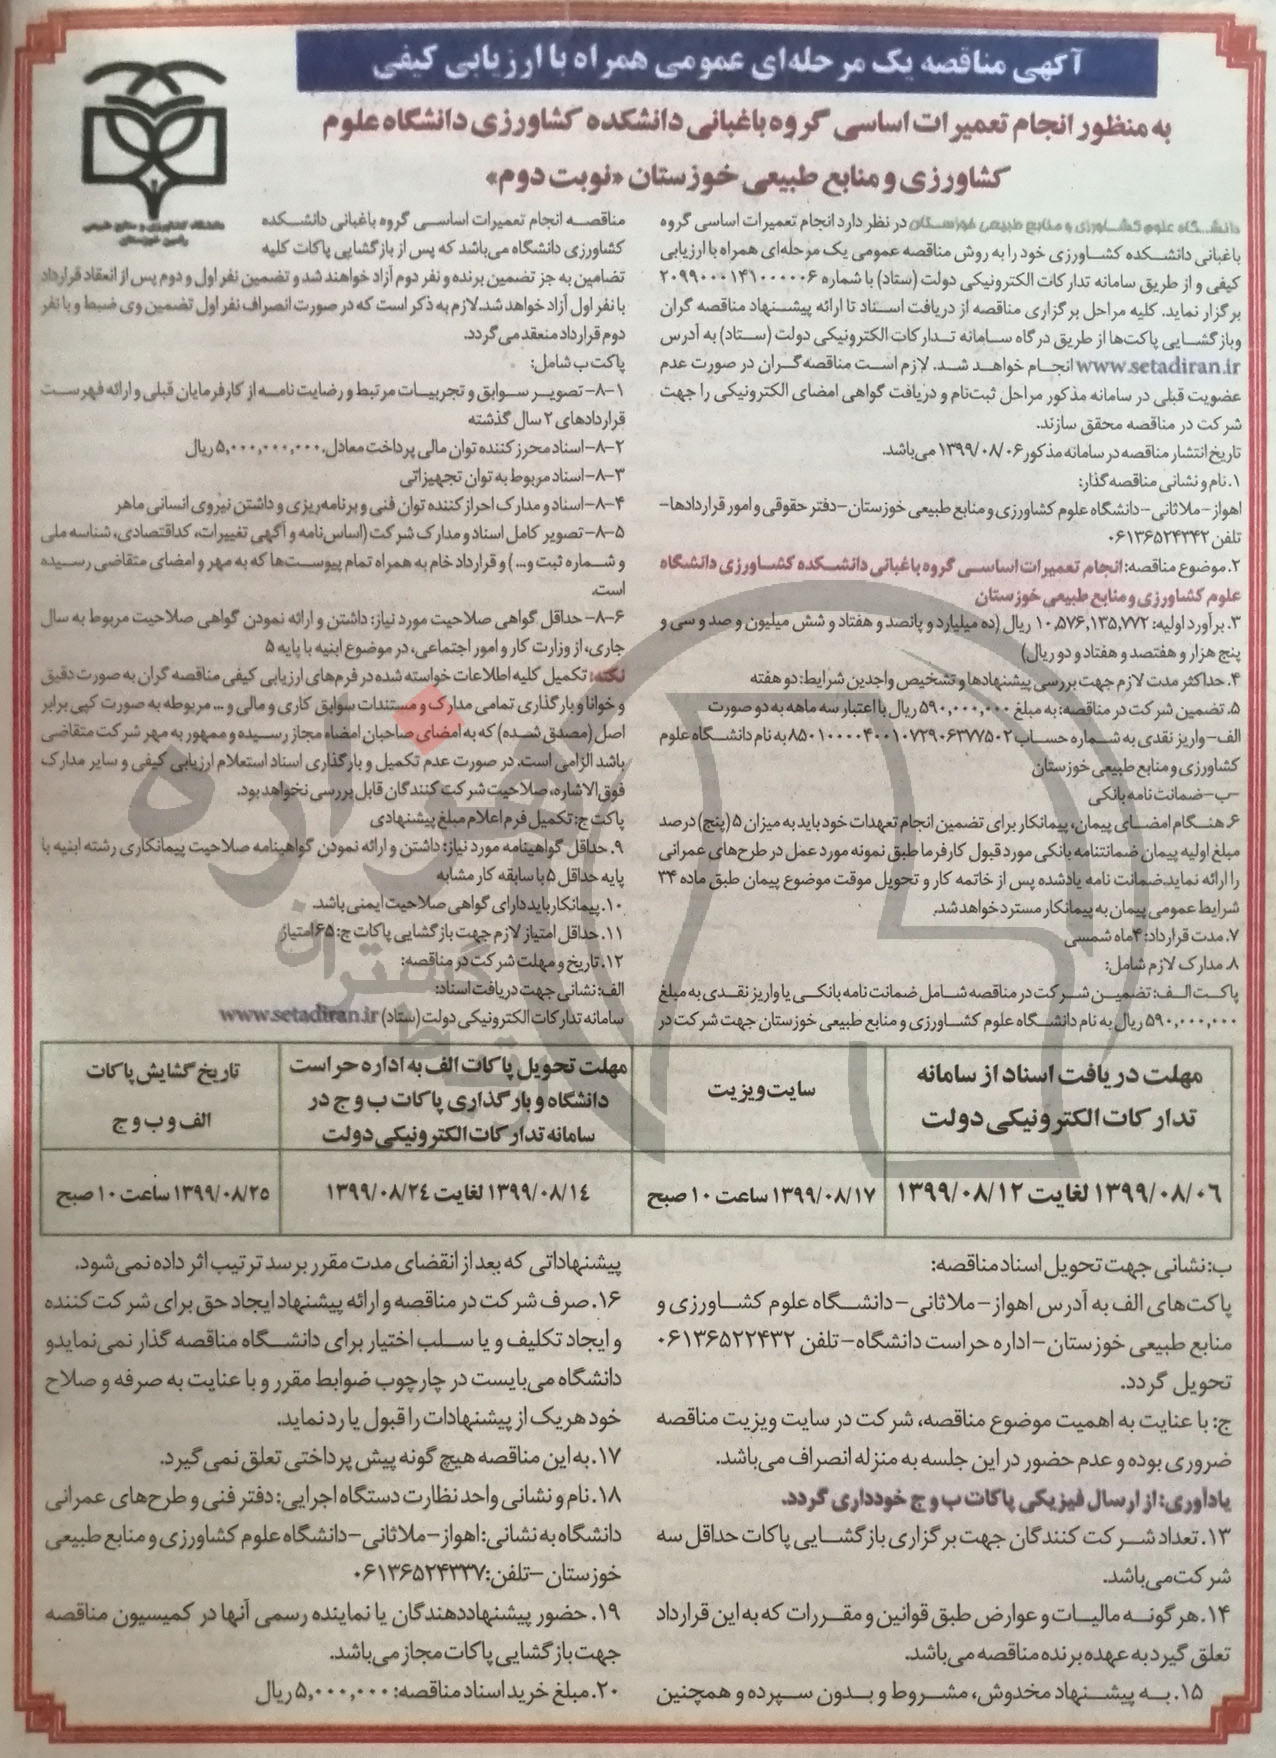 آگهی مناقصه یک مرحله‌ای عمومی همراه با ارزیابی کیفی
به منظور انجام تعمیرات اساسی گروه باغبانی دانشکده کشاورزی دانشگاه علوم
کشاورزی و منابع طبیعی خوزستان «نوبت دوم»
دانشگاه کشاورزی و منابع طبیعی
رامین خوزستان
دانشگاه علوم کشاورزی و منابع طبیعی خوزستان در نظر دارد انجام تعمیرات اساسی گروه
باغبانی دانشکده کشاورزی خود را به روش مناقصه عمومی یک مرحله‌ای همراه با ارزیابی
کیفی و از طریق سامانه تدارکات الکترونیکی دولت (ستاد) با شماره ۲۰۹۹۰۰۰۱۴۱۰۰۰۰۰۶
برگزار نماید. کلیه مراحل برگزاری مناقصه از دریافت اسناد تا ارائه پیشنهاد مناقصه گران
و بازگشایی پاکت‌ها از طریق درگاه سامانه تدارکات الکترونیکی دولت (ستاد) به آدرس
www.setadiran.ir انجام خواهد شد. لازم است مناقصه‌گران در صورت عدم
عضویت قبلی در سامانه مذکور مراحل ثبت‌نام و دریافت گواهی امضای الکترونیکی را جهت
شرکت در مناقصه محقق سازند.
تاریخ انتشار مناقصه در سامانه مذکور ۱۳۹۹/۰۸/۰۶ می‌باشد.
۱. نام و نشانی مناقصه گذار:
اهواز-ملاثانی-دانشگاه علوم کشاورزی و منابع طبیعی خوزستان-دفتر حقوقی و امور قراردادها-
تلفن ۰۶۱۳۶۵۲۴۳۴۲
۲. موضوع مناقصه: انجام تعمیرات اساسی گروه باغبانی دانشکده کشاورزی دانشگاه
علوم کشاورزی و منابع طبیعی خوزستان
۳. برآورد اولیه: ۱۰,۵۷۶,۱۳۵,۷۷۲ ریال (ده میلیارد و پانصد و هفتاد و شش میلیون و صد و سی و
پنج هزار و هفتصد و هفتاد و دو ریال)
۴. حداکثر مدت لازم جهت بررسی پیشنهادها و تشخیص واجدین شرایط: دو هفته
۵. تضمین شرکت در مناقصه: به مبلغ ۵۹۰,۰۰۰,۰۰۰ ریال با اعتبار سه ماهه به دو صورت
الف-واریز نقدی به شماره حساب ۸۵۰۱۰۰۰۰۴۰۰۱۰۷۲۹۰۶۳۷۷۵۰۲ به نام دانشگاه علوم
کشاورزی و منابع طبیعی خوزستان
-ب-ضمانت نامه بانکی
۶. هنگام امضای پیمان، پیمانکار برای تضمین انجام تعهدات خود باید به میزان ۵ (پنج) درصد
مبلغ اولیه پیمان ضمانتنامه بانکی مورد قبول کارفرما طبق نمونه مورد عمل در طرح‌های عمرانی
را ارائه نماید.ضمانت نامه یادشده پس از خاتمه کار و تحویل موقت موضوع پیمان طبق ماده ۳۴
شرایط عمومی پیمان به پیمانکار مسترد خواهد شد.
۷. مدت قرارداد: ۴ ماه شمسی
۸. مدارک لازم شامل:
پاکت الف: تضمین شرکت در مناقصه شامل ضمانت نامه بانکی یا واریز نقدی به مبلغ
۵۹۰,۰۰۰,۰۰۰ ریال به نام دانشگاه علوم کشاورزی و منابع طبیعی خوزستان جهت شرکت در
مناقصه انجام تعمیرات اساسی گروه باغبانی دانشکده
کشاورزی دانشگاه می‌باشد که پس از بازگشایی پاکات کلیه
تضامین به جز تضمین برنده و نفر دوم آزاد خواهند شد و تضمین نفر اول و دوم پس از انعقاد قرارداد
با نفر اول آزاد خواهد شد.لازم به ذکر است که در صورت انصراف نفر اول تضمین وی ضبط و با نفر
دوم قرارداد منعقد می‌گردد.
پاکت ب شامل:
۸-۱- تصویر سوابق و تجربیات مرتبط و رضایت نامه از کارفرمایان قبلی و ارائه فهرست
قراردادهای ۲ سال گذشته
۸-۲- اسناد محرز کننده توان مالی پرداخت معادل ۵,۰۰۰,۰۰۰,۰۰۰ ریال
۸-۳-اسناد مربوط به توان تجهیزاتی
۸-۴- اسناد و مدارک احراز کننده توان فنی و برنامه‌ریزی و داشتن نیروی انسانی ماهر
۸-۵- تصویر کامل اسناد و مدارک شرکت (اساس‌نامه و آگهی تغییرات، کداقتصادی، شناسه ملی
و شماره ثبت و...) و قرارداد خام به همراه تمام پیوست‌ها که به مهر و امضای متقاضی رسیده
است.
۸-۶- حداقل گواهی صلاحیت مورد نیاز: داشتن و ارائه نمودن گواهی صلاحیت مربوط به سال
جاری، از وزارت کار و امور اجتماعی، در موضوع ابنیه با پایه ۵
نکته: تکمیل کلیه اطلاعات خواسته شده در فرم‌های ارزیابی کیفی مناقصه گران به صورت دقیق
و خوانا و بارگذاری تمامی مدارک و مستندات سوابق کاری و مالی و ... مربوطه به صورت کپی برابر
اصل (مصدق شده) که به امضای صاحبان امضاء مجاز رسیده و ممهور به مهر شرکت متقاضی
باشد الزامی است. در صورت عدم تکمیل و بارگذاری اسناد استعلام ارزیابی کیفی و سایر مدارک
فوق‌الاشاره، صلاحیت شرکت کنندگان قابل بررسی نخواهد بود.
پاکت ج: تکمیل فرم اعلام مبلغ پیشنهادی
۹. حداقل گواهینامه مورد نیاز: داشتن و ارائه نمودن گواهینامه صلاحیت پیمانکاری رشته ابنیه با
پایه حداقل ۵ با سابقه کار مشابه
۱۰. پیمانکار باید دارای گواهی صلاحیت ایمنی باشد.
۱۱. حداقل امتیاز لازم جهت بازگشایی پاکات ج: ۶۵ امتیاز
۱۲. تاریخ و مهلت شرکت در مناقصه:
الف: نشانی جهت دریافت اسناد:
سامانه تدارکات الکترونیکی دولت (ستاد) www.setadiran.ir
مهلت دریافت اسناد از سامانه
تدارکات الکترونیکی دولت
سایت ویزیت
مهلت تحویل پاکات الف به اداره حراست
دانشگاه و بارگذاری پاکات ب و ج در
سامانه تدارکات الکترونیکی دولت
تاریخ گشایش پاکات
الف و ب و ج
۱۳۹۹/۰۸/۰۶ لغایت ۱۳۹۹/۰۸/۱۲
۱۳۹۹/۰۸/۱۷ ساعت ۱۰ صبح
۱۳۹۹/۰۸/۱۴ لغایت ۱۳۹۹/۰۸/۲۴
۱۳۹۹/۰۸/۲۵ ساعت ۱۰ صبح
ب: نشانی جهت تحویل اسناد مناقصه:
پاکت‌های الف به آدرس اهواز-ملاثانی-دانشگاه علوم کشاورزی و
منابع طبیعی خوزستان-اداره حراست دانشگاه-تلفن ۰۶۱۳۶۵۲۲۴۳۲
تحویل گردد.
ج: با عنایت به اهمیت موضوع مناقصه، شرکت در سایت ویزیت مناقصه
ضروری بوده و عدم حضور در این جلسه به منزله انصراف می‌باشد.
یادآوری: از ارسال فیزیکی پاکات ب و ج خودداری گردد.
۱۳. تعداد شرکت کنندگان جهت برگزاری بازگشایی پاکات حداقل سه
شرکت می‌باشد.
۱۴. هرگونه مالیات و عوارض طبق قوانین و مقررات که به این قرارداد
تعلق گیرد به عهده برنده مناقصه می‌باشد.
۱۵. به پیشنهاد مخدوش، مشروط و بدون سپرده و همچنین
پیشنهاداتی که بعد از انقضای مدت مقرر برسد ترتیب اثر داده نمی‌شود.
۱۶. صرف شرکت در مناقصه و ارائه پیشنهاد ایجاد حق برای شرکت کننده
و ایجاد تکلیف و یا سلب اختیار برای دانشگاه مناقصه گذار نمی‌نماید و
دانشگاه می‌بایست در چارچوب ضوابط مقرر و با عنایت به صرفه و صلاح
خود هریک از پیشنهادات را قبول یا رد نماید.
۱۷. به این مناقصه هیچ گونه پیش پرداختی تعلق نمی گیرد.
۱۸. نام و نشانی واحد نظارت دستگاه اجرایی: دفتر فنی و طرح‌های عمرانی
دانشگاه به نشانی: اهواز-ملاثانی-دانشگاه علوم کشاورزی و منابع طبیعی
خوزستان -تلفن: ۰۶۱۳۶۵۲۴۳۳۷
۱۹. حضور پیشنهاددهندگان یا نماینده رسمی آنها در کمیسیون مناقصه
جهت بازگشایی پاکات مجاز می‌باشد.
۲۰. مبلغ خرید اسناد مناقصه: ۵,۰۰۰,۰۰۰ ریال